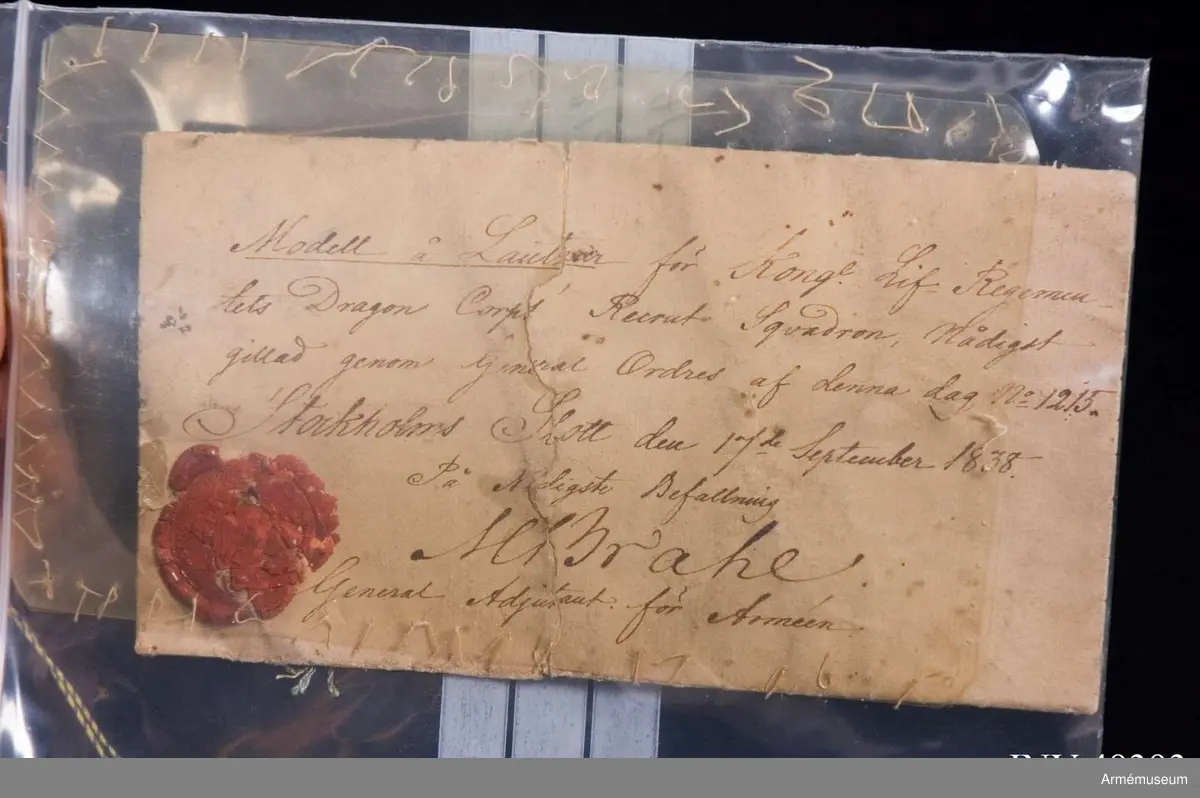 Modell å Lautzier för Kongl. Lif-Regemen-
tets Dragon Corps' Recrut Sqvadron, Nådigst
gillad genom General Ordres af denna dag No 1215.
Stockholms Slott den 17de September 1838.
På Nådigste Befallning
M Brahe.
General Adjutant för Arméen.
Armémuseum